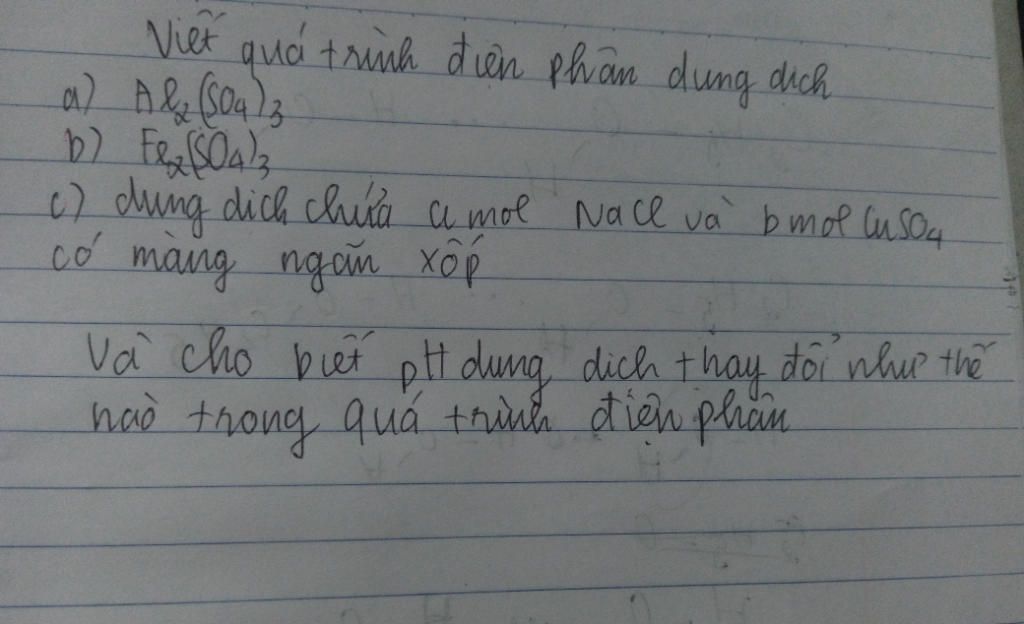 Viết quá trình điện phân dung dịch
a) Al₂(SO₄)₃
b) Fe₂(SO₄)₃
c) dung dịch chứa a mol NaCl và b mol CuSO₄
có màng ngăn xốp
Và cho biết pH dung dịch thay đổi như thế
nào trong quá trình điện phân